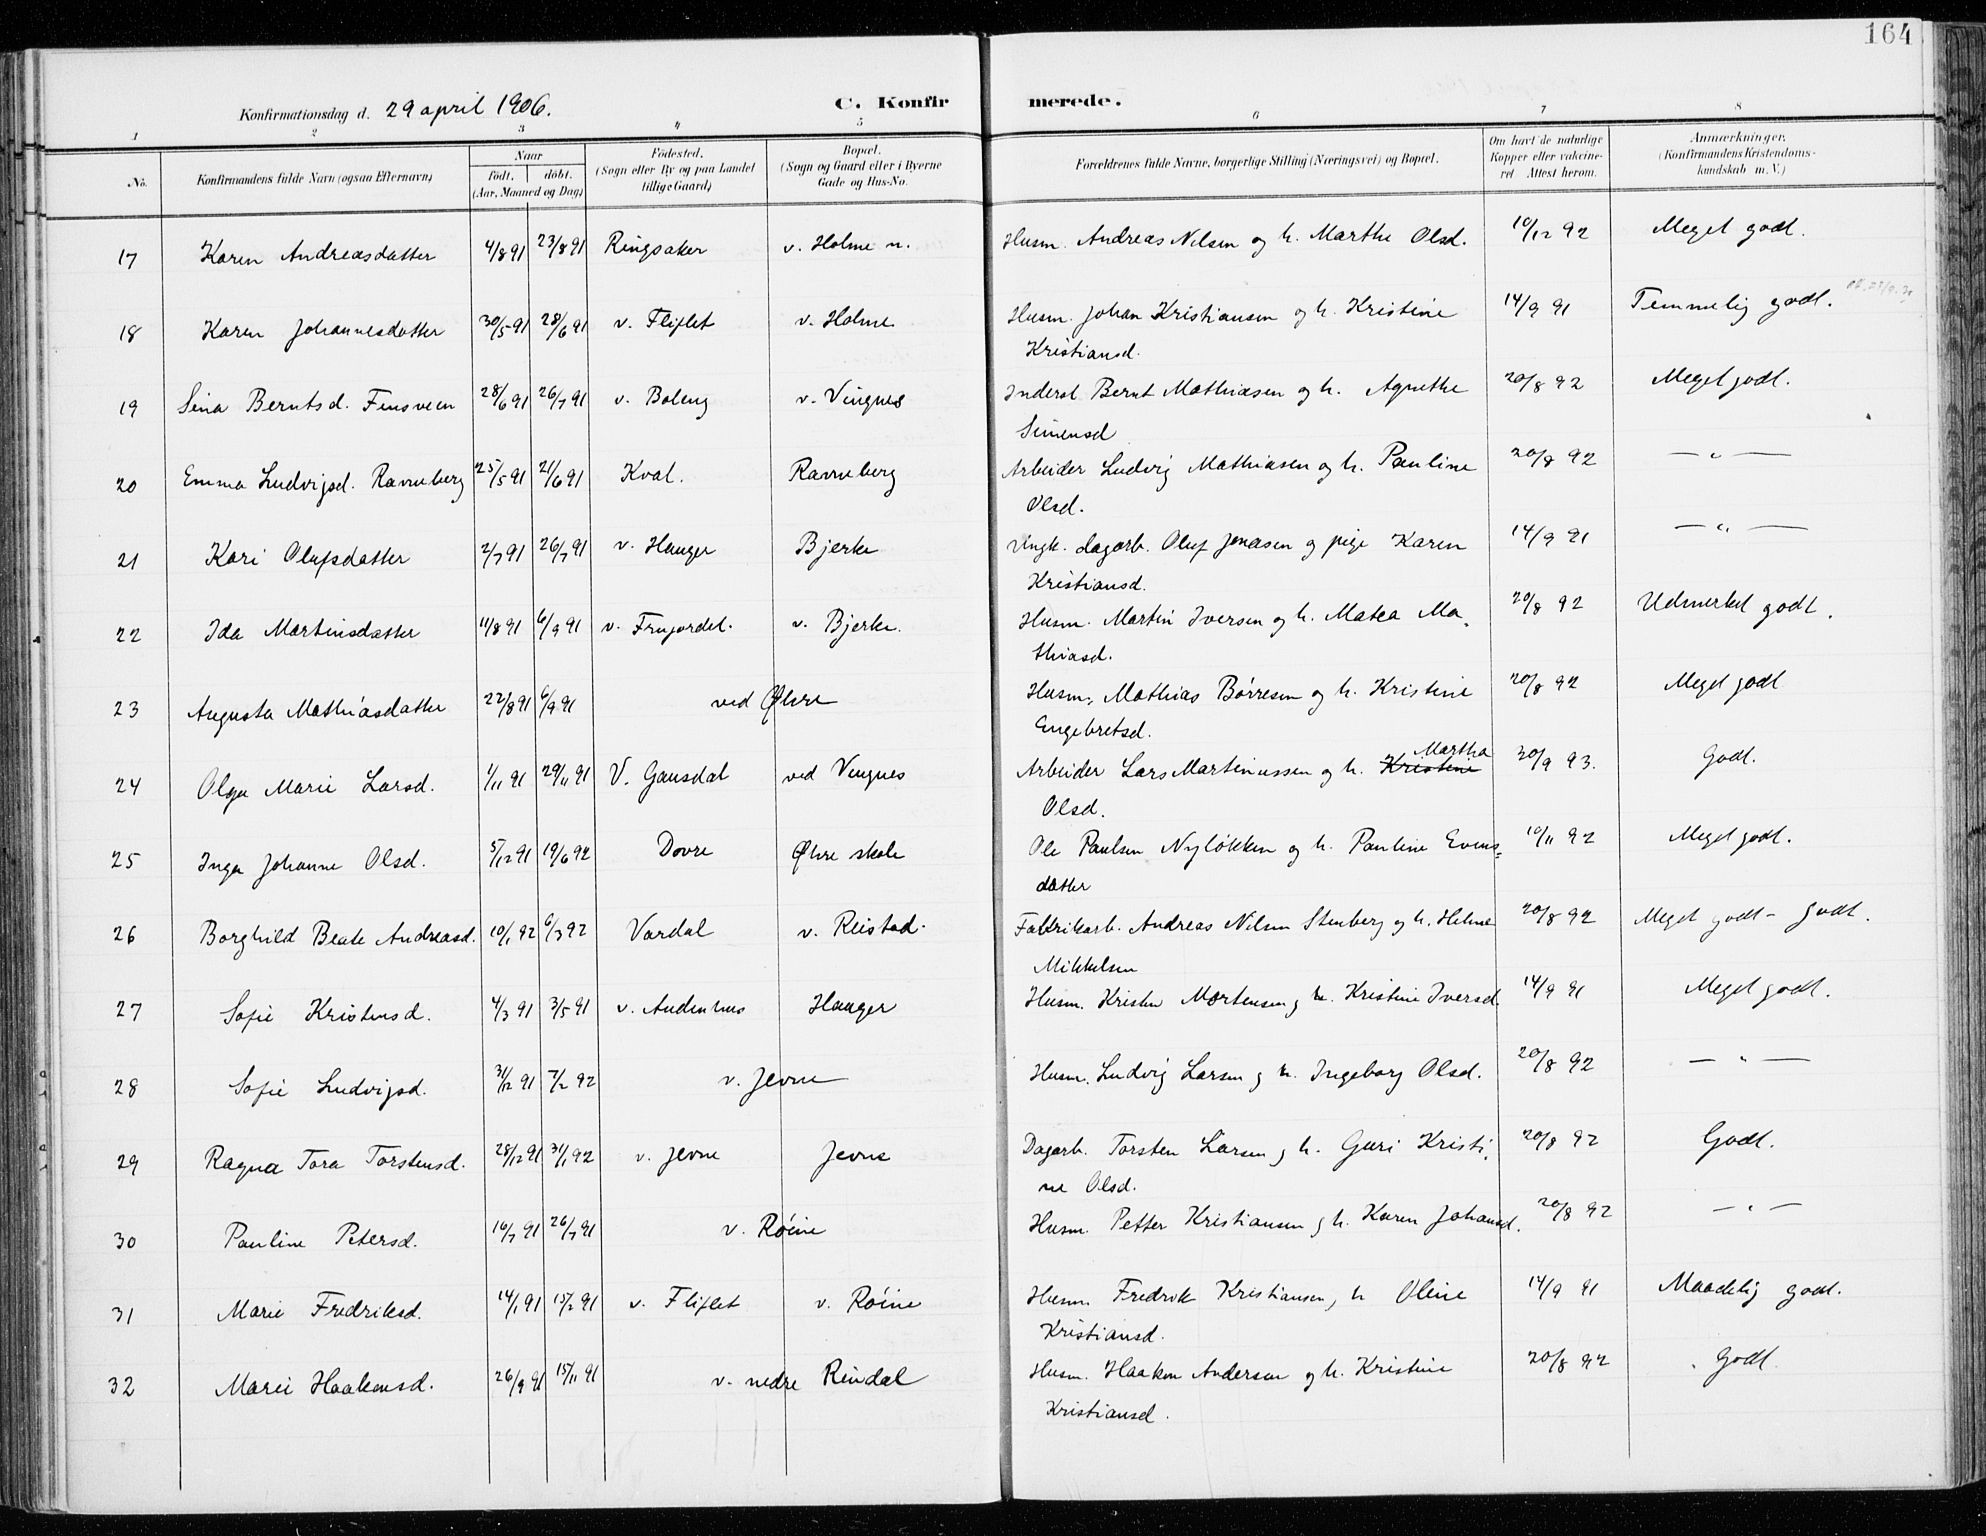 164
Konfirmationsdag d. 29 april 1906. C. Konfirmerede.
1 2 3 4 5 6 7 8
No. Konfirmandens fulde Navn (ogsaa Efternavn) Naar født. døbt. (Aar, Maaned og Dag) Fødested. (Sogn eller By og paa Landet tillige Gaard) Bopæl. (Sogn og Gaard eller i Byerne Gade og Hus-No. Forældrenes fulde Navne, borgerlige Stilling (Næringsvei) og Bopæl. Om havt de naturlige Kopper eller vaccineret Attest herom. Anmærkninger. (Konfirmandens Kristendomskundskab m. V.)
17 Karen Andreasdatter 4/8 91 23/8 91 Ringsaker v. Holme n. Husm. Andreas Nilsen og h. Marthe Olsd. 10/12 92 Meget godt.
18 Karen Johannesdatter 30/5 91 28/6 91 v. Fliflet v. Holme Husm. Johan Kristiansen og h. Kristine 14/9 91 Temmelig godt.
Kristiansd.
19 Sina Berntsd. Finsveen 28/6 91 26/7 91 v. Boleng v. Vingnes Inderst Bernt Mathiasen og h. Agnethe 20/8 92 Meget godt.
Simensd
20 Emma Ludvigsd. Ravneberg 25/5 91 21/6 91 Kval. Ravneberg Arbeider Ludvig Mathiasen og h. Pauline 20/8 92 — " —
Olsd.
21 Kari Olufsdatter 2/7 91 26/7 91 v. Hauger Bjerke Ungk. dagarb. Oluf Jonasen og pige Karen 14/9 91 — " —
Kristiansd.
22 Ida Martinsdatter 11/8 91 6/9 91 v. Frujordet. v. Bjerke. Husm. Martin Iversen og h. Matea Ma- 20/8 92 Udmerket godt.
thiasd.
23 Augusta Mathiasdatter 22/8 91 6/9 91 ved Øhre Husm. Mathias Børresen og h. Kristine 20/8 92 Meget godt
Engebretsd.
Martha
24 Olga Marie Larsd. 1/11 91 29/11 91 V. Gausdal ved Vingnes Arbeider Lars Martinussen og h. Kristine 30/9 93. Godt.
Olsd.
25 Inga Johanne Olsd. 5/12 91 19/6 92 Dovre Øhre skole Ole Paulsen Nyløkken og h. Pauline Evens- 10/11 92 Meget godt.
datter
26 Borghild Beate Andreasd. 10/1 92 6/3 92 Vardal v. Reistad. Fabrikarb. Andreas Nilsen Stenberg og h. Helene 20/8 92 Meget godt - godt.
Mikkelsen
27 Sofie Kristensd. 4/3 91 3/5 91 v. Audenhus Hauger Husm. Kristen Mortensen og h. Kristine Iversd. 14/9 91 Meget godt.
28 Sofie Ludvigsd. 31/12 91 7/2 92 v. Jevne Husm. Ludvig Larsen og h. Ingeborg Olsd. 20/8 92 — " —
29 Ragna Tora Torstensd. 28/12 91 31/1 92 v. Jevne Jevne Dagarb. Torsten Larsen og h. Guri Kristi- 20/8 92 Godt.
ne Olsd.
30 Pauline Petersd. 16/7 91 26/7 91 v. Røine Husm. Petter Kristiansen og h. Karen Johansd. 20/8 92 — " —
31 Marie Fredriksd. 14/1 91 15/2 91 v. Fliflet v. Røine Husm. Fredrik Kristiansen, h. Oline 14/9 91 Maadelig godt.
Kristiansd.
32 Marie Haakensd. 26/9 91 15/11 91 v. nedre Rindal Husm. Haaken Andersen og h. Kristine 20/8 92 Godt
Kristiansd.